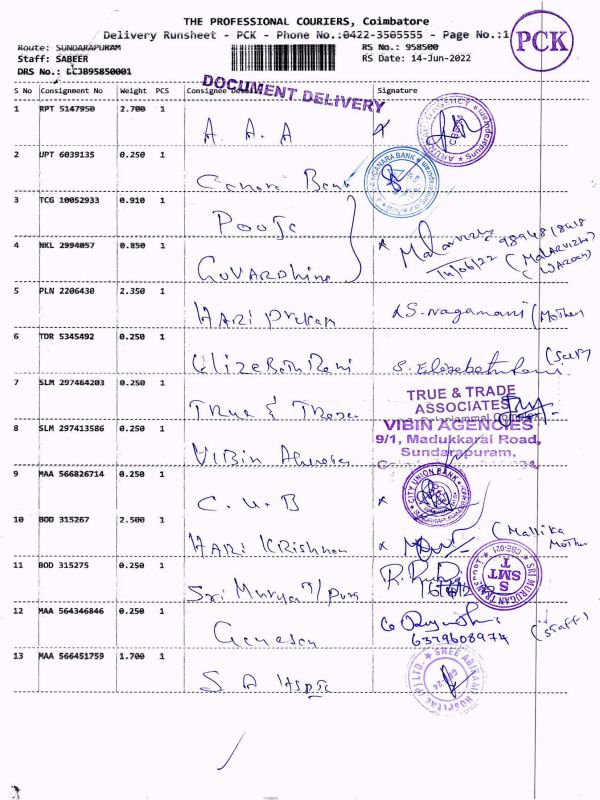 THE PROFESSIONAL COURIERS, Coimbatore
Delivery Runsheet - PCK - Phone No.:0422-3505555 - Page No.:1
PCK
Route: SUNDARAPURAM
RS No.: 958500
Staff: SABEER
RS Date: 14-Jun-2022
DRS No.: CCJB95850001
DOCUMENT DELIVERY
S No Consignment No Weight PCS Consignee Signature
1 RPT 5147950 2.700 1 A. A. A
2 UPT 6039135 0.250 1 Canara Bank
CANARA BANK
3 TCG 10052933 0.910 1 Pooja
Malarvizhi
14/06/22
(MALARVIZHI)
(WARDEN)
4 NKL 2994057 0.850 1
5 PLN 2206430 2.350 1 HARI S. Nagamani (Mother
6 TDR 5345492 0.250 1 S. Elizabeth Rani
7 SLM 297464203 0.250 1 TRUE & TRADE
TRUE & TRADE
ASSOCIATES
8 SLM 297413586 0.250 1 VIBIN
VIBIN AGENCIES
9/1, Madukkarai Road,
Sundarapuram,
9 MAA 566826714 0.250 1 C. U. B
CITY UNION BANK
10 BOD 315267 2.500 1 HARI KRISHNAN (Mallika
Mother
11 BOD 315275 0.250 1 Sri
SRI MURUGAN
CBE-021
SMT
12 MAA 564346846 0.250 1 Ganesan
6379608974 (Staff)
13 MAA 566451759 1.700 1 S A
SREE ABIRAMI HOSPITAL (P) LTD.